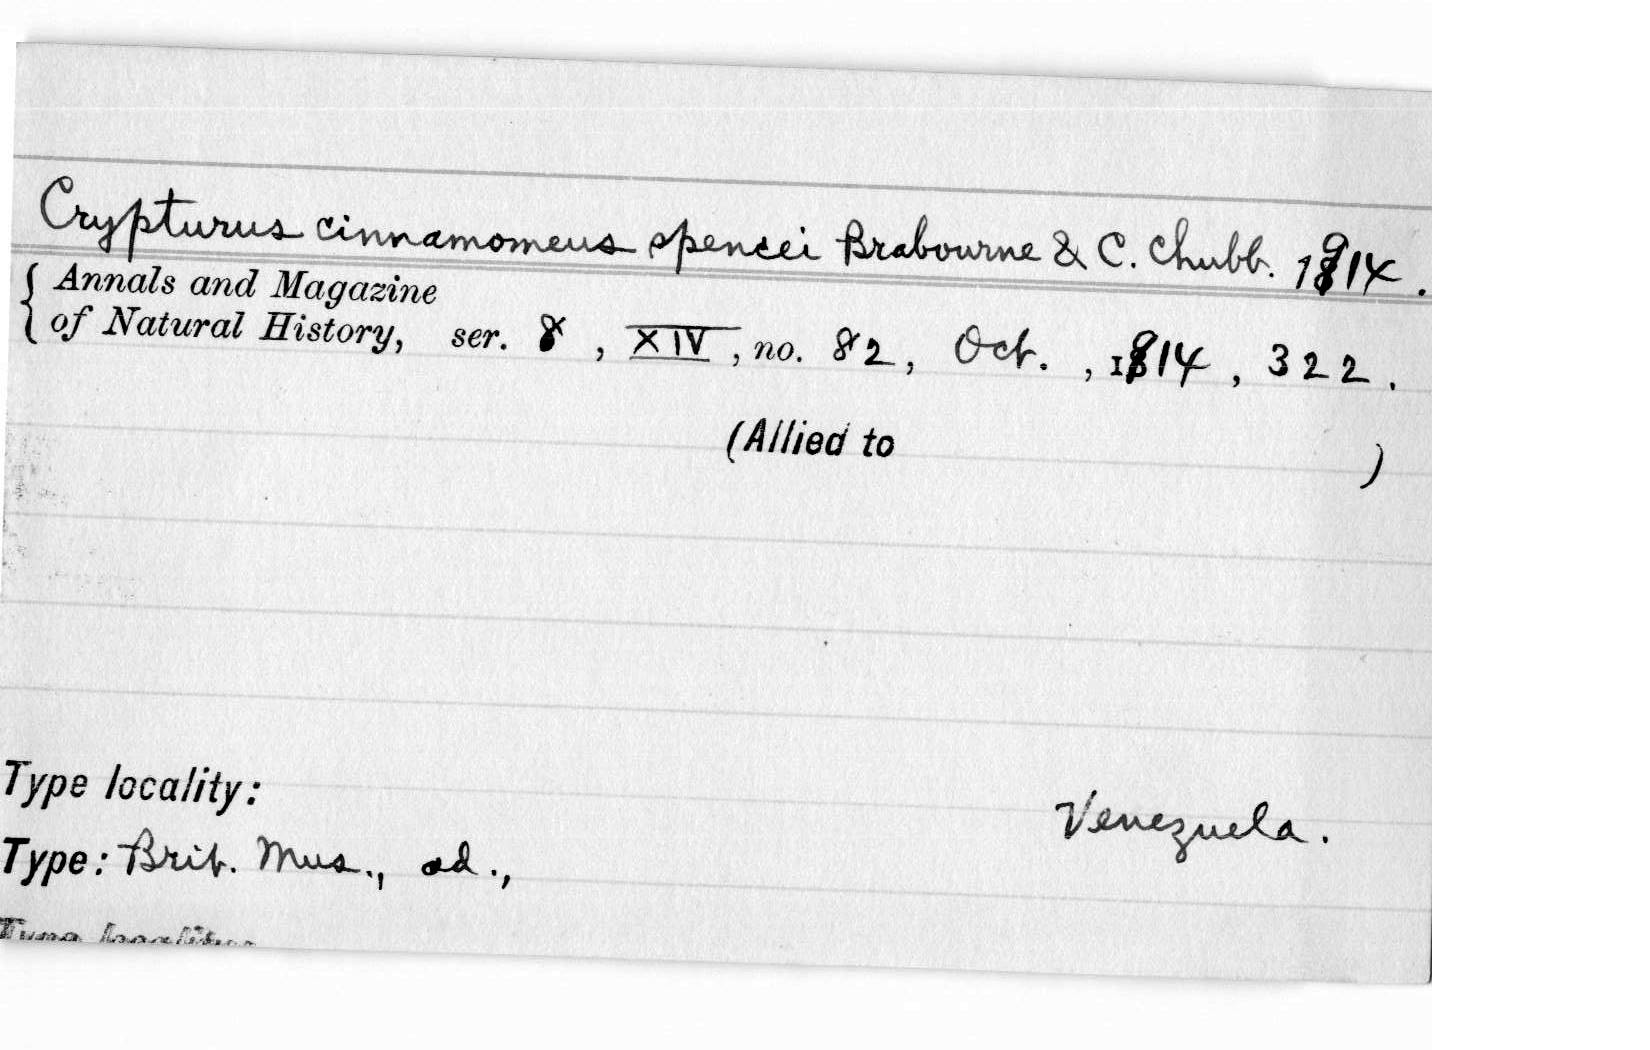 Crypturus cinnamomeus spencei Brabourne & C. Chubb. 1914.
Annals and Magazine
of Natural History, ser. 8, XIV, no. 82, Oct., 1914, 322.
(Allied to )
Type locality: Venezuela.
Type: Brit. Mus., ad.,
Type locality: